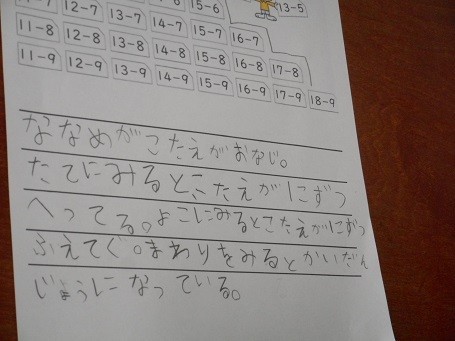 15-6 13-5
12-7 13-7 14-7 15-7 16-7
11-8 12-8 13-8 14-8 15-8 16-8 17-8
11-9 12-9 13-9 14-9 15-9 16-9 17-9 18-9
ななめがこたえがおなじ。
たてにみるとこたえがにずつ
へってる。よこにみるとこたえがにずつ
ふえてぐ。まわりをみるとかいだん
じょうになっている。